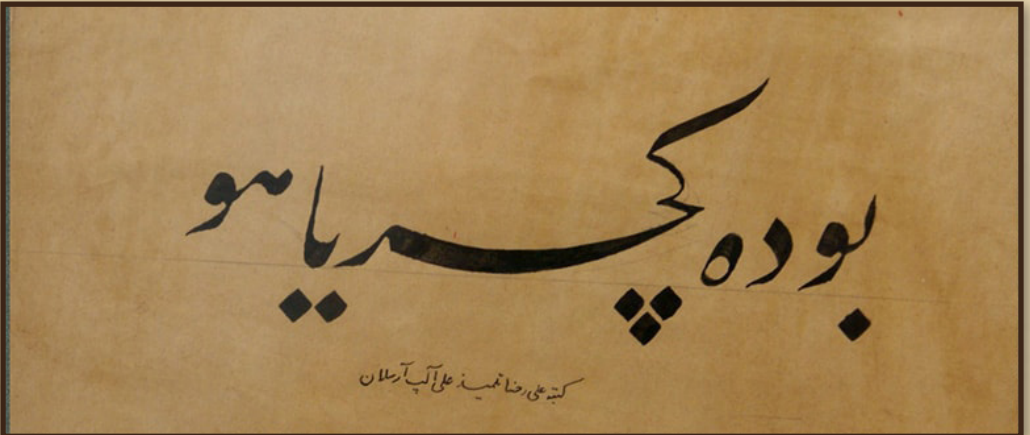 بو ده كچر يا هو
كتبه علی رضا تلمیذ علی آلپ آرسلان